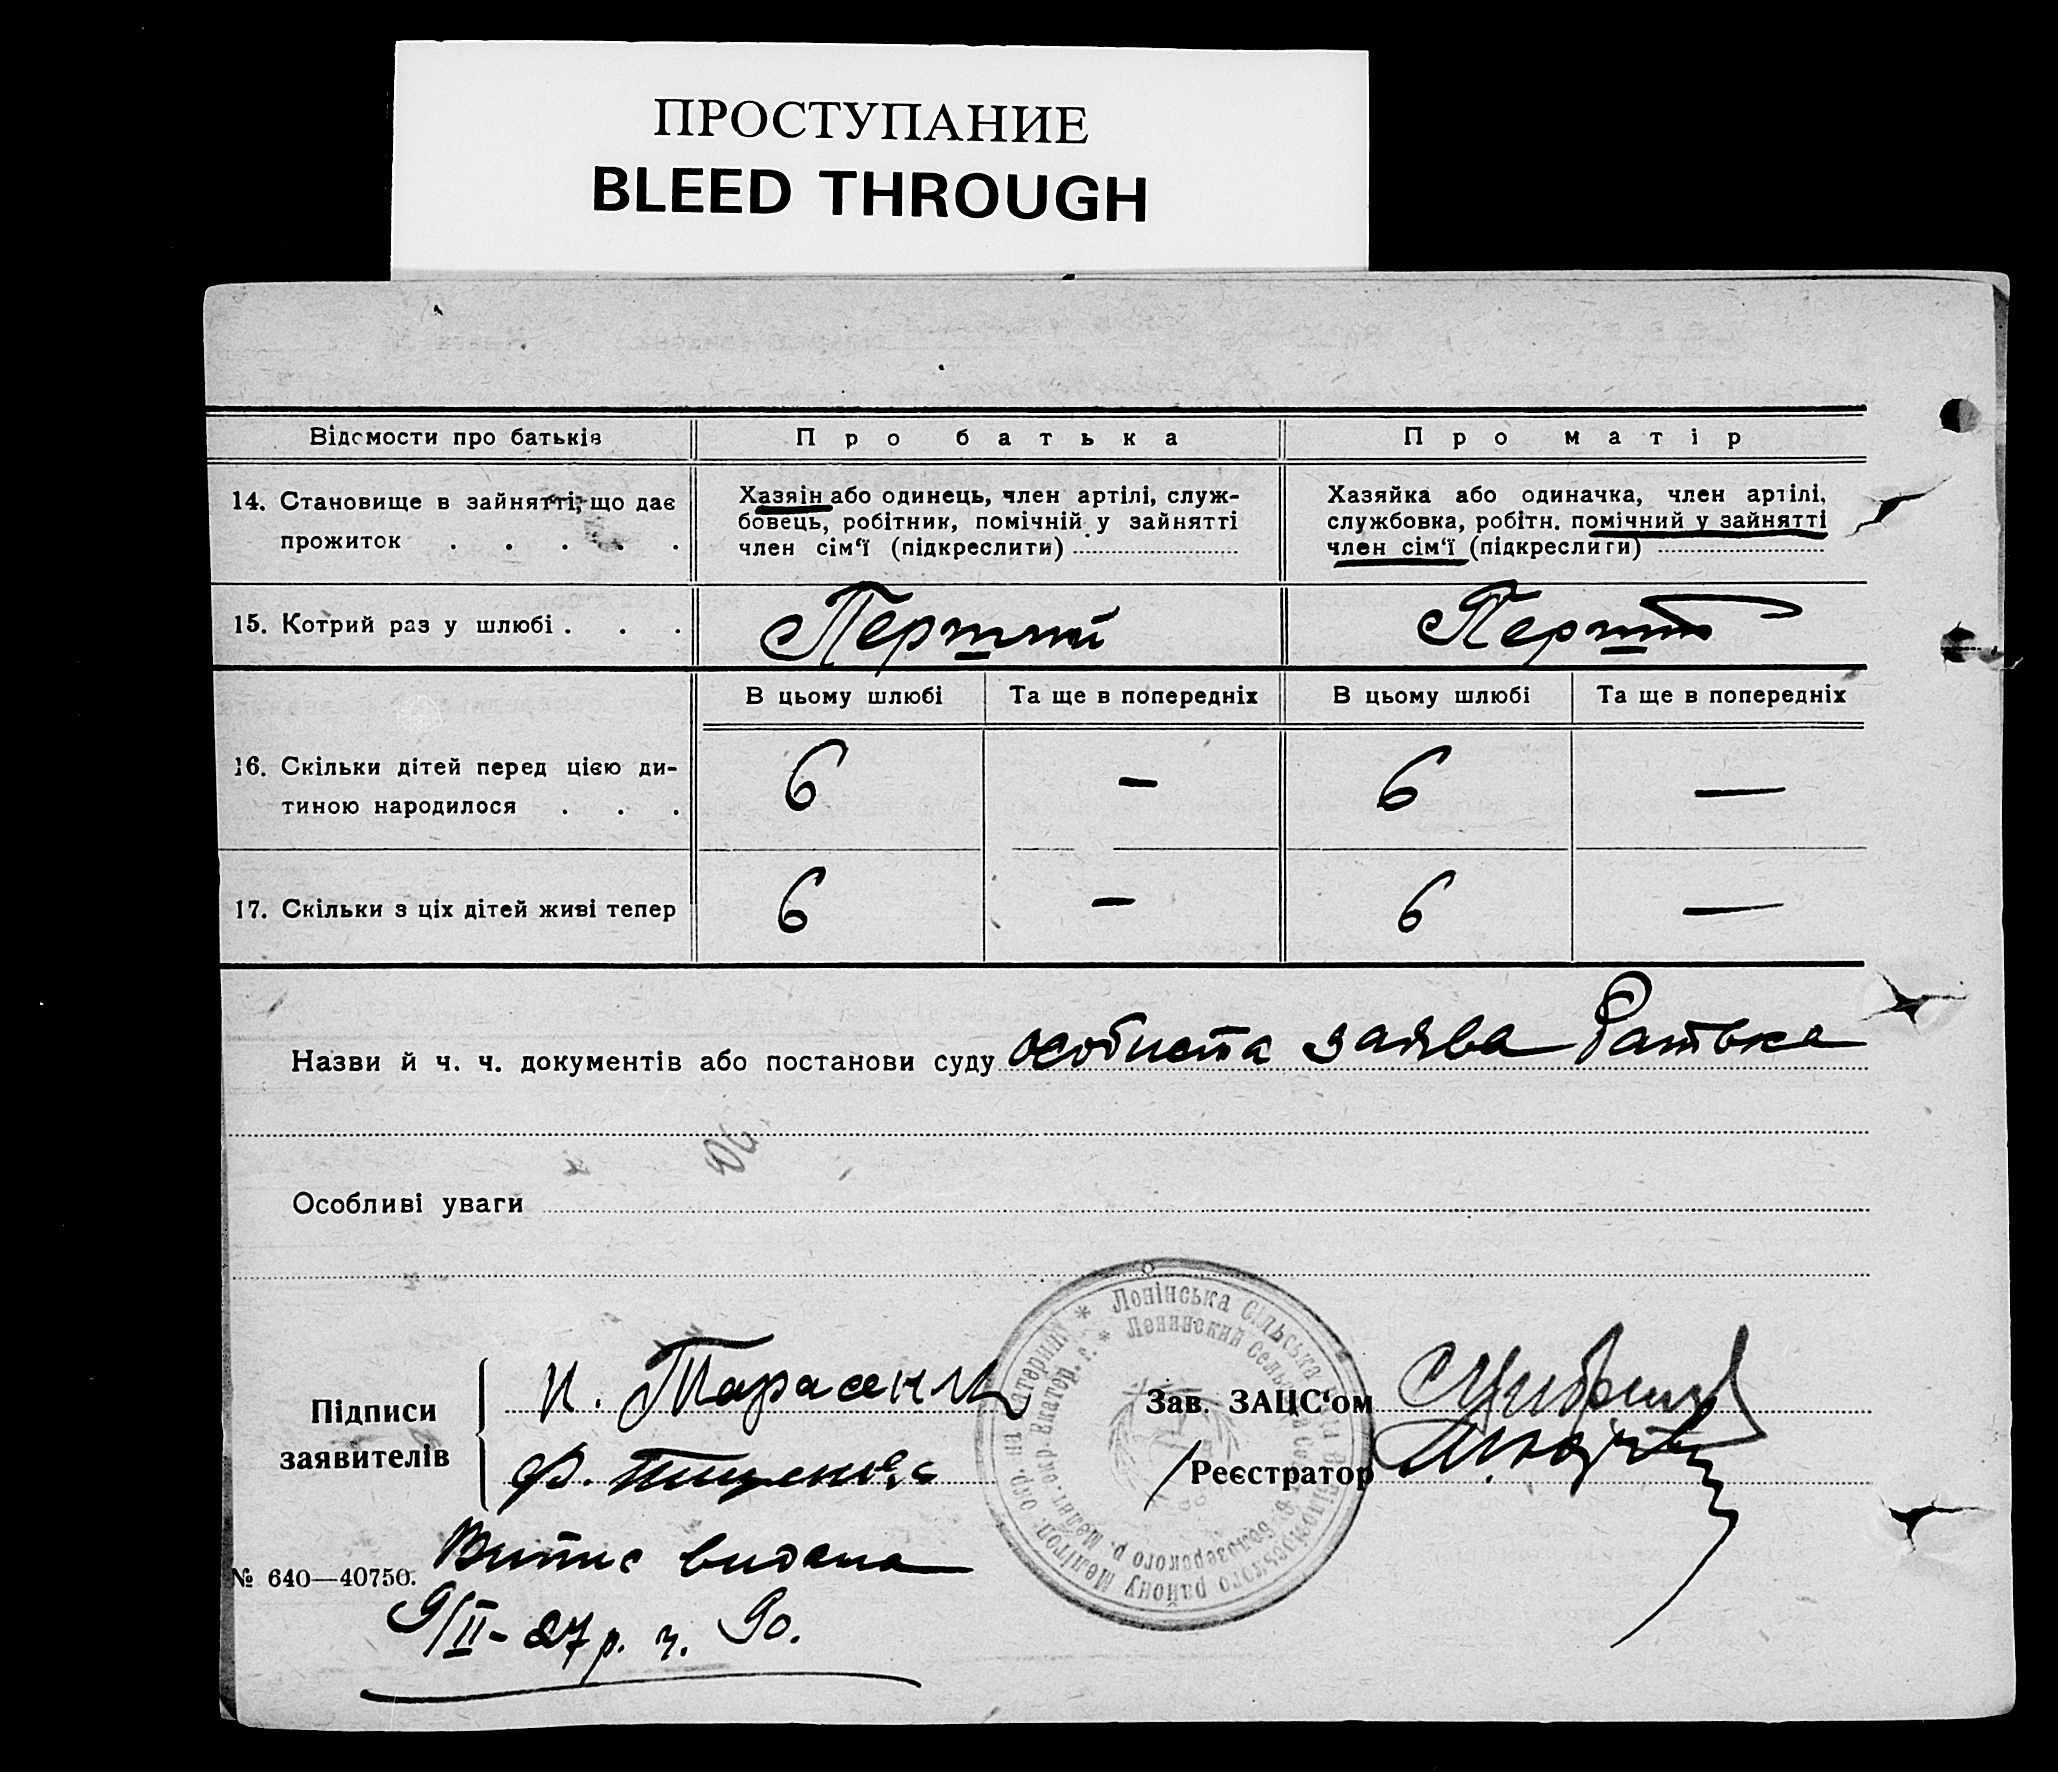 ПРОСТУПАНИЕ
BLEED THROUGH
Відомости про батьків
Про батька
Про матір
14. Становище в зайнятті, що дає
прожиток . . . . .
Хазяін або одинець, член артілі, служ-
бовець, робітник, помічній у зайнятті
член сім‘ї (підкреслити)
Хазяйка або одиначка, член артілі,
службовка, робітн. помічний у зайнятті
член сім‘ї (підкреслити)
15. Котрий раз у шлюбі . . .
Перший
Перший
В цьому шлюбі
Та ще в попередніх
В цьому шлюбі
Та ще в попередніх
16. Скільки дітей перед цією ди-
тиною народилося . . .
6
—
6
—
17. Скільки з ціх дітей живі тепер
6
—
6
—
Назви й ч. ч. документів або постанови суду особиста заява батька
Особливі уваги
Ленінська Сільська
Ленинский Сельс
району Мелітоп. окр. на Катеринщ.
Белозерского р. Мелит. окр. Екатер. г.
Підписи
заявителів
И. Тарасенко
Ф. Тищенко
Зав. ЗАЦС‘ом
Реєстратор
Випис видана
№ 640—40750.
9/II-27 р. ч. 90.